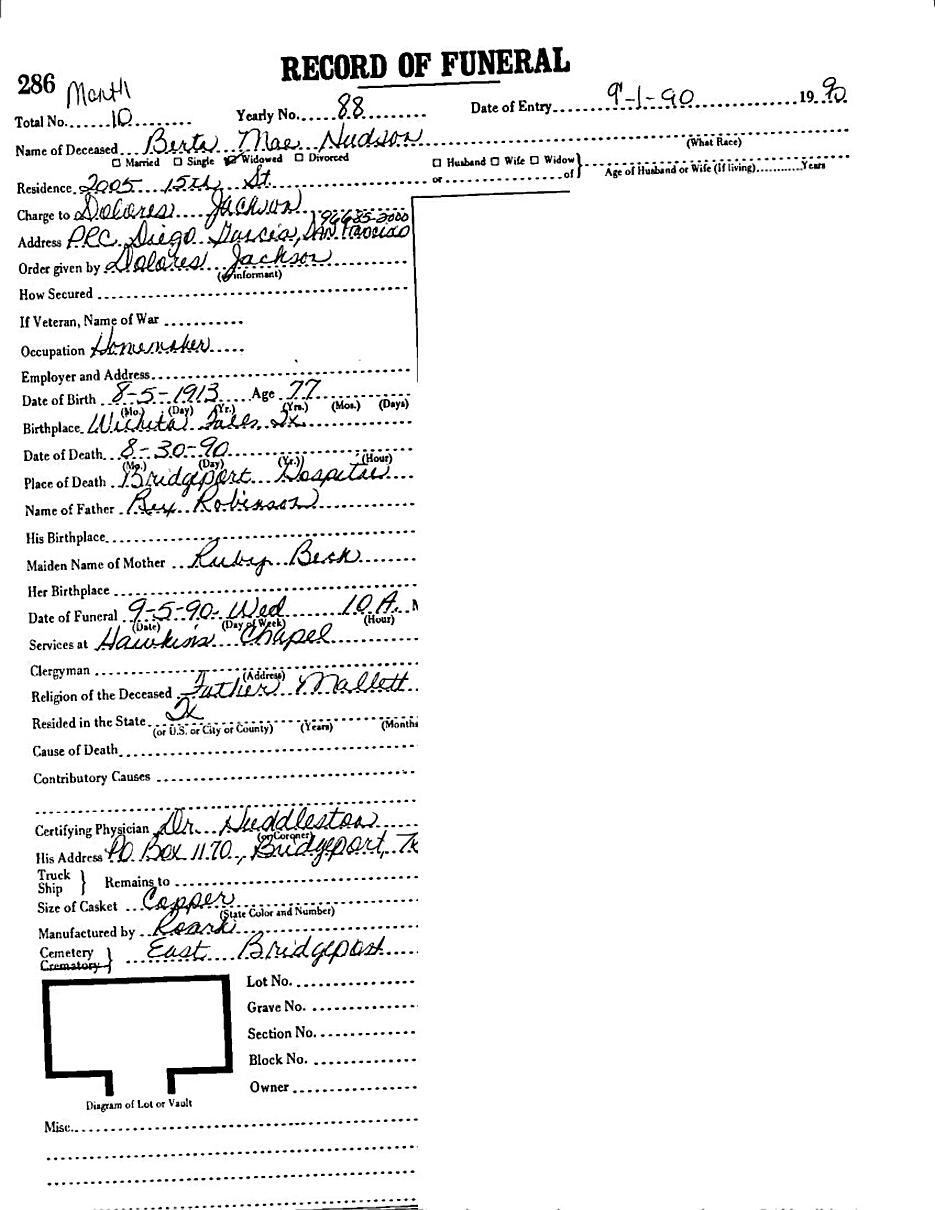 RECORD OF FUNERAL
286 Month
Total No. 10 Yearly No. 88 Date of Entry 9-1-90 19 90
Name of Deceased Berta Mae Hudson (What Race)
☐ Married ☐ Single ☑ Widowed ☐ Divorced ☐ Husband ☐ Wife ☐ Widow } or of Age of Husband or Wife (If living) Years
Residence 2005 15th St.
Charge to Dolores Jackson
96685-2000
Address P.R.C. Diego Garcia, San Francisco
Order given by Dolores Jackson
(informant)
How Secured
If Veteran, Name of War
Occupation Homemaker
Employer and Address
Date of Birth 8-5-1913 Age 77
(Mo.) (Day) (Yr.) (Yrs.) (Mos.) (Days)
Birthplace Wichita Falls, Tx
Date of Death 8-30-90
(Mo.) (Day) (Yr.) (Hour)
Place of Death Bridgeport Hospital
Name of Father Rex Robinson
His Birthplace
Maiden Name of Mother Ruby Beck
Her Birthplace
Date of Funeral 9-5-90 Wed 10 A. M
(Date) (Day of Week) (Hour)
Services at Hawkins Chapel
Clergyman
(Address)
Religion of the Deceased Father Mallett
Resided in the State Tx
(or U.S. or City or County) (Years) (Months
Cause of Death
Contributory Causes
Certifying Physician Dr. Huddleston
(or Coroner)
His Address P.O. Box 1170, Bridgeport, Tx
Truck
Ship } Remains to
Size of Casket Copper
(State Color and Number)
Manufactured by Roark
Cemetery
Crematory } East Bridgeport
Lot No.
Grave No.
Section No.
Block No.
Owner
Diagram of Lot or Vault
Misc.